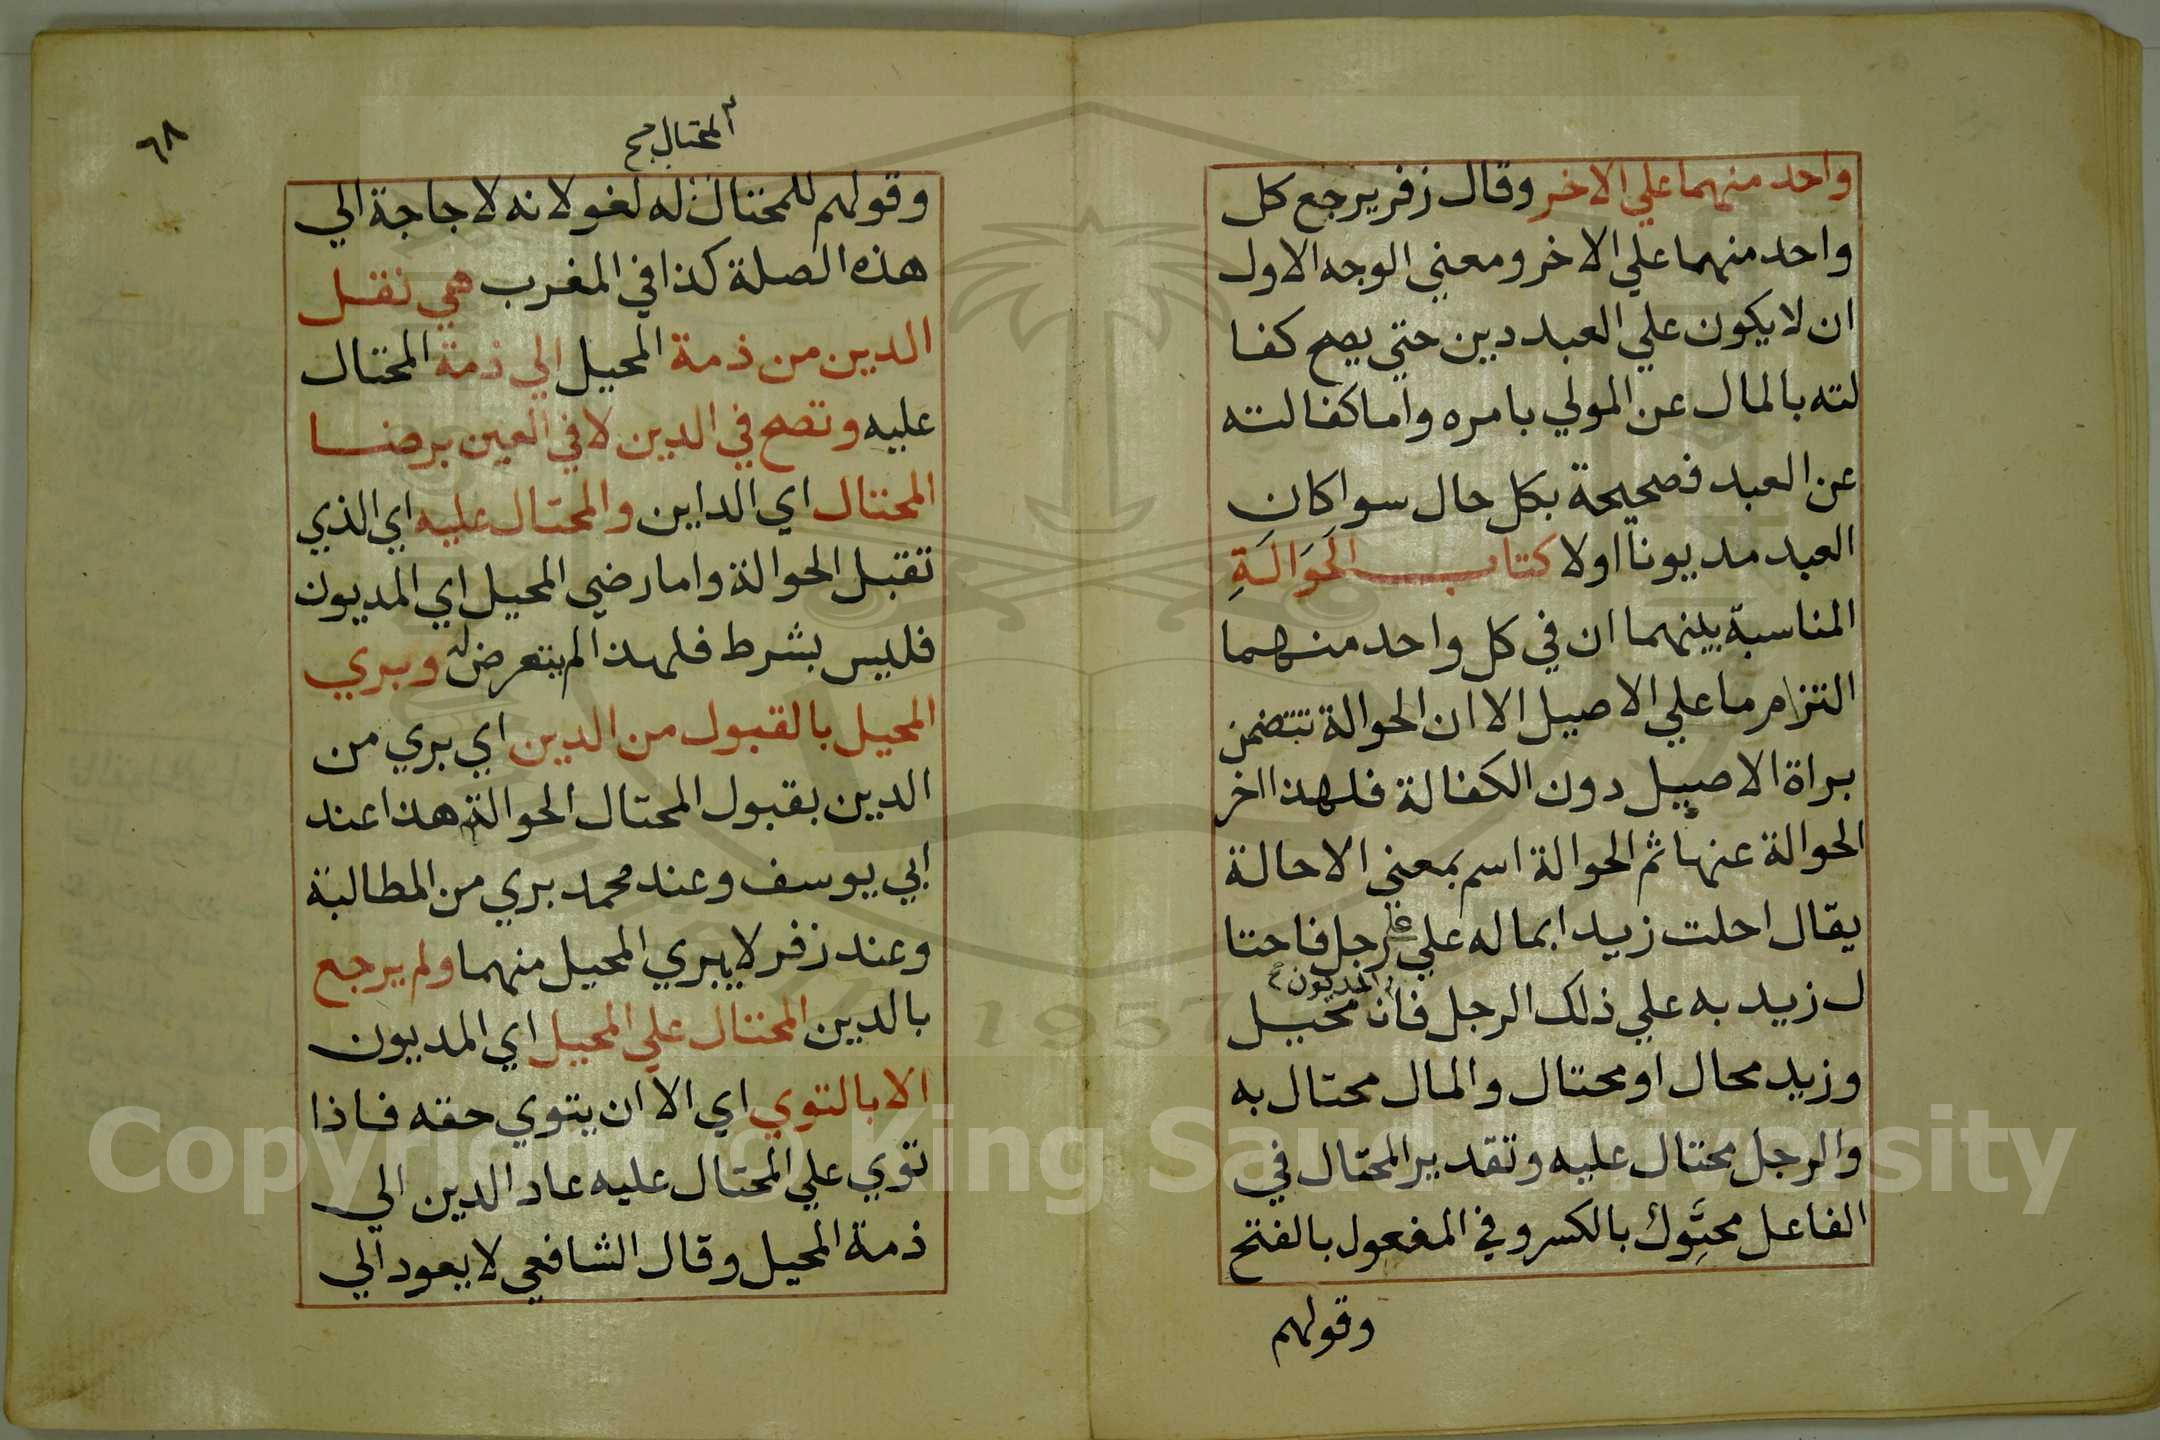 واحد منهما علي الاخر وقال زفر يرجع كل
واحد منهما علي الاخر ومعني الوجه الاول
ان لا يكون علي العبد دين حتي يصح كفا
لته بالمال عن المولي بامره واما كفالته
عن العبد فصحيحة بكل حال سوا كان
العبد مديونا اولا كتاب الحَوَالَةِ
المناسبة بينهما ان في كل واحد منهما
التزام ما علي الاصيل الا ان الحوالة تتضمن
براة الاصيل دون الكفالة فلهذا اخر
الحوالة عنها ثم الحوالة اسم بمعني الاحالة
يقال احلت زيدا بماله علي رجل فاحتا
المديون
ل زيد به علي ذلك الرجل فانا محيل
وزيد محال او محتال والمال محتال به
والرجل محتال عليه وتقدير المحتال في
الفاعل محتَوِل بالكسر وفي المفعول بالفتح
وقولهم
٦٨
المحتال صح
وقولهم للمحتال له لغو لانه لا حاجة الي
هذه الصلة كذا في المغرب هي نقل
الدين من ذمة المحيل الي ذمة المحتال
عليه وتصح في الدين لا في العين برضا
المحتال اي الداين والمحتال عليه اي الذي
تقبل الحوالة واما رضي المحيل اي المديون
فليس بشرط فلهذا لم يتعرض له وبري
المحيل بالقبول من الدين اي بري من
الدين بقبول المحتال الحوالة هذا عند
ابي يوسف وعند محمد بري من المطالبة
وعند زفر لا يبري المحيل منهما ولم يرجع
بالدين المحتال علي المحيل اي المديون
الا بالتوي اي الا ان يتوي حقه فاذا
توي علي المحتال عليه عاد الدين الي
ذمة المحيل وقال الشافعي لا يعود الي
1957
Copyright © King Saud University